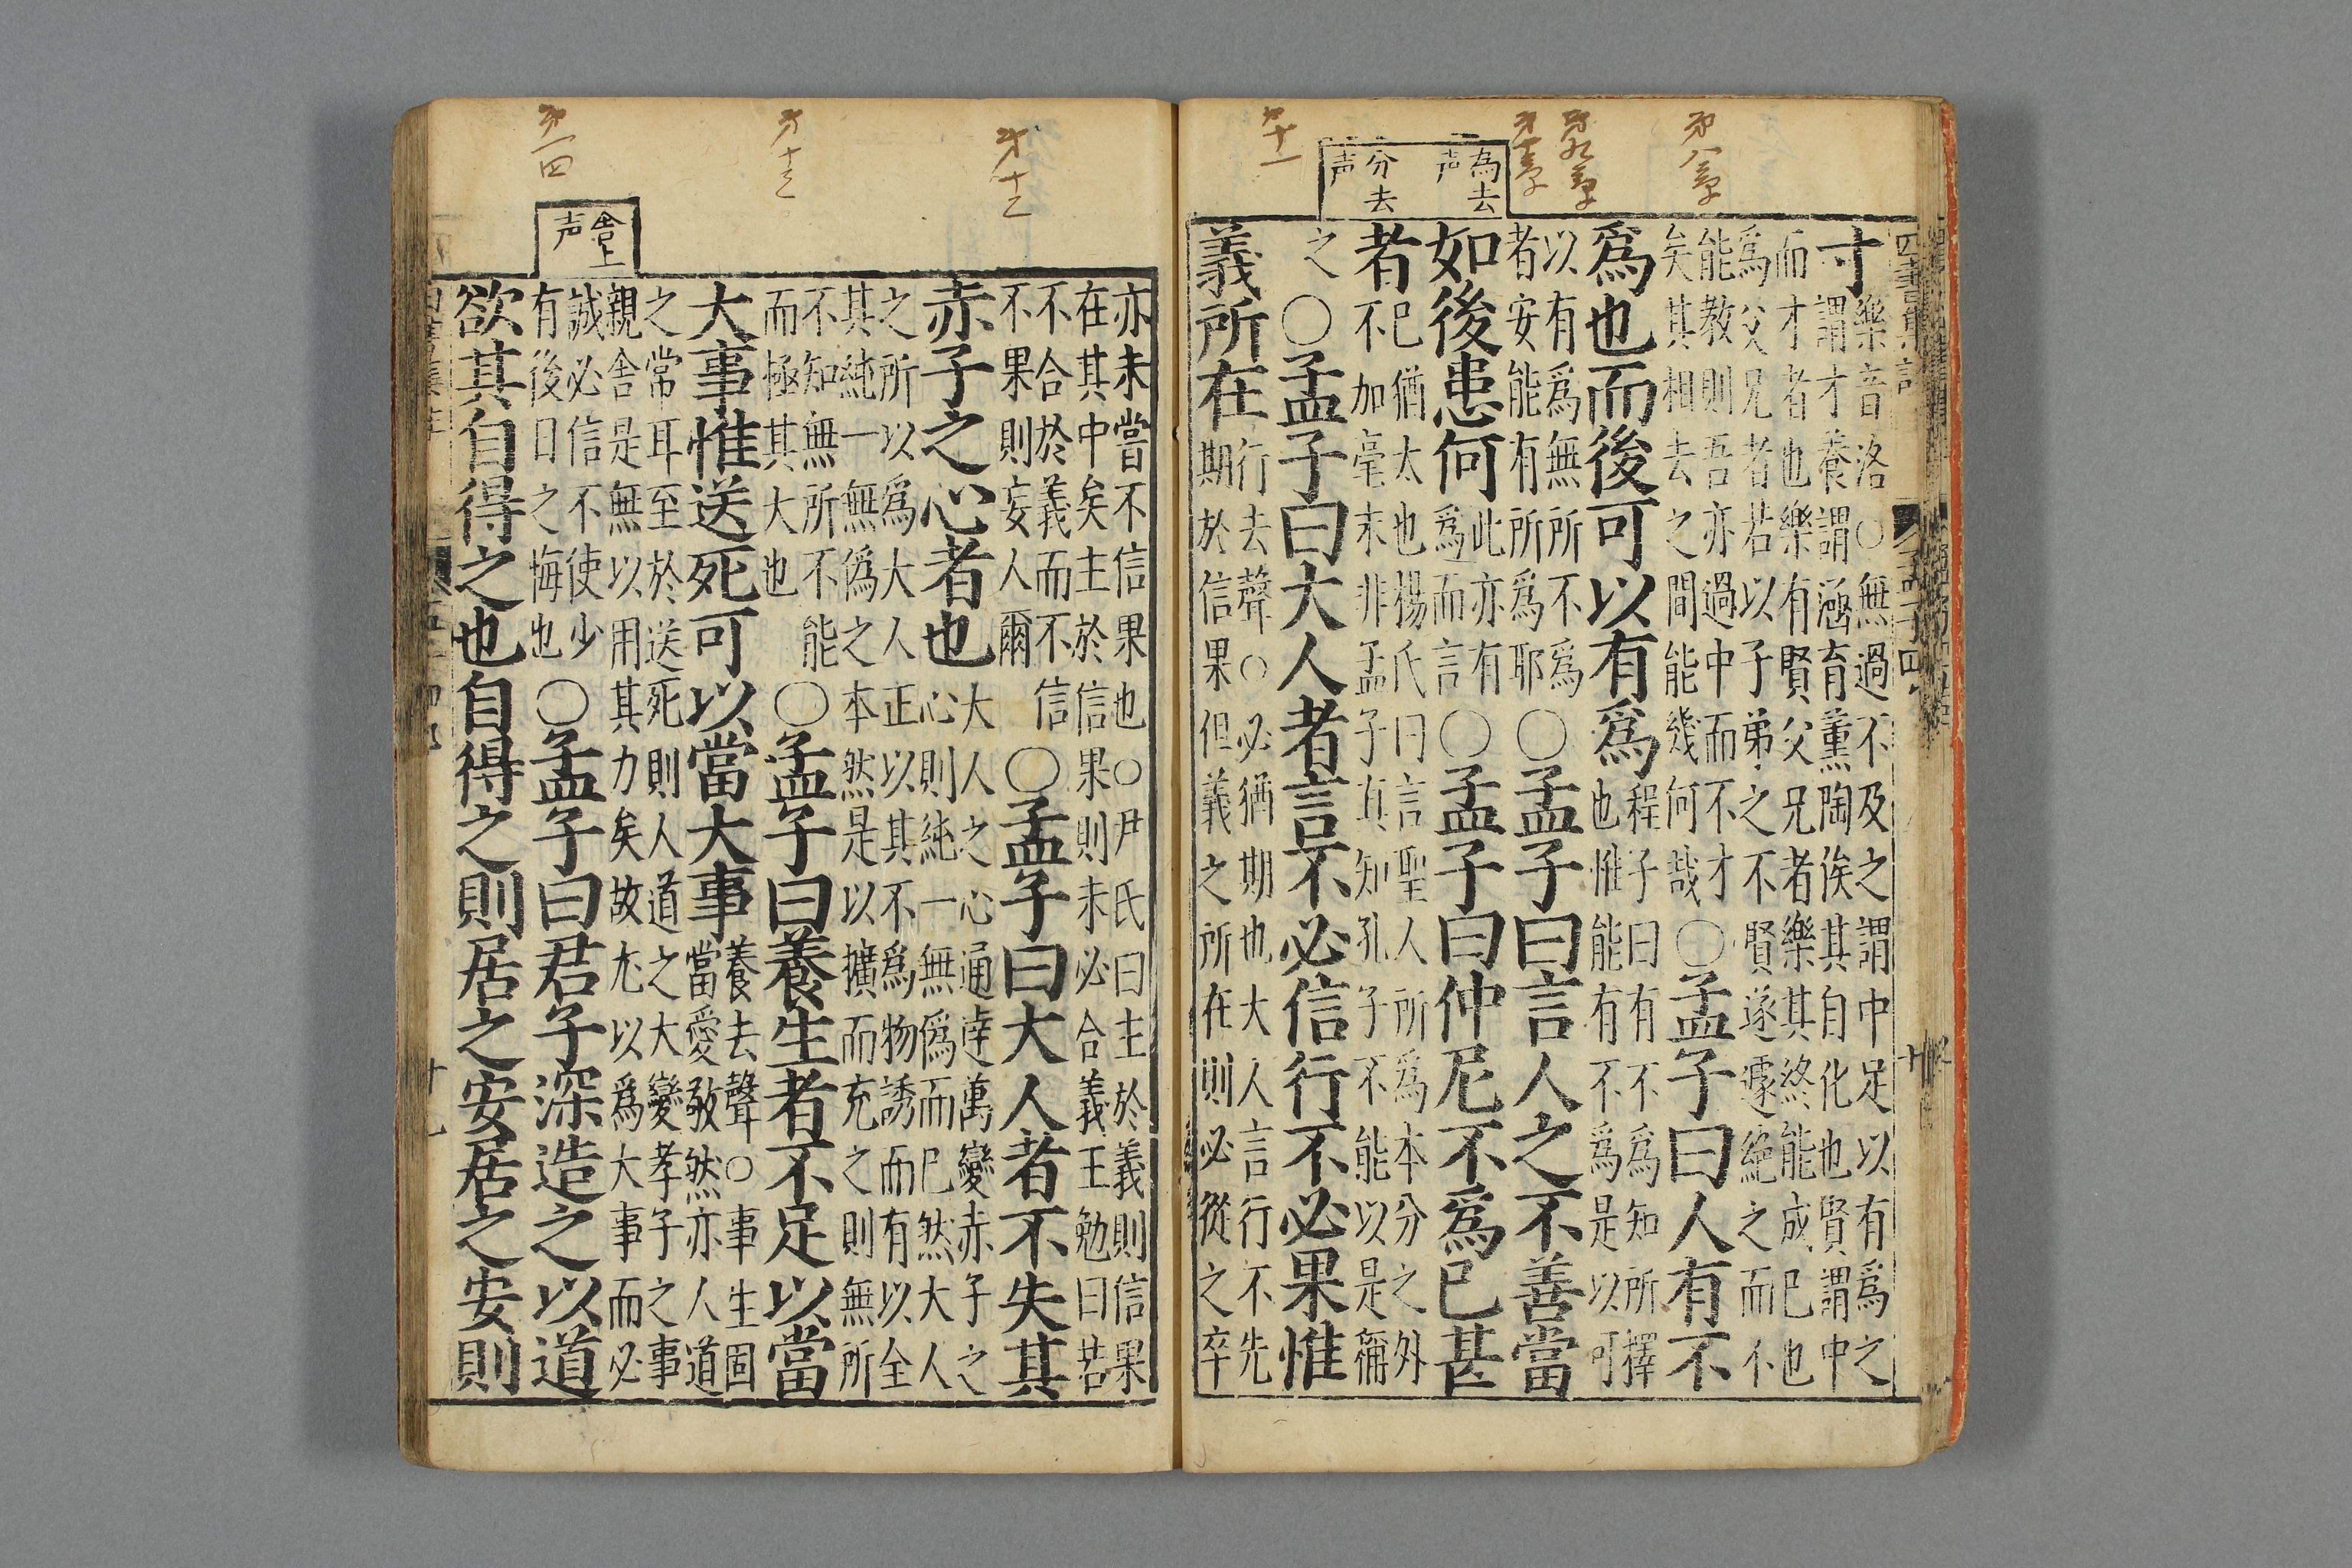 第八章
第九章
第十章
為去声
分去声
第十一
四書集註 孟子四 十
寸
樂音洛○無過不及之謂中足以有爲之
謂才養謂涵育薰陶俟其自化也賢謂中
而才者也樂有賢父兄者樂其終能成已也
爲父兄者若以子弟之不賢遂遽絶之而不
能教則吾亦過中而不才
矣其相去之間能幾何哉
○孟子曰人有不
爲也而後可以有爲
程子曰有不爲知所擇
也惟能有不爲是以可
以有爲無所不爲
者安能有所爲耶
○孟子曰言人之不善當
如後患何
此亦有
爲而言
○孟子曰仲尼不爲已甚
者
已猶太也楊氏曰言聖人所爲本分之外
不加毫末非孟子真知孔子不能以是稱
之
○孟子曰大人者言不必信行不必果惟
義所在
行去聲○必猶期也大人言行不先
期於信果但義之所在則必從之卒
第十二
第十三
第一四
舎上声
亦未嘗不信果也○尹氏曰主於義則信果
在其中矣主於信果則未必合義王勉曰若
不合於義而不信
不果則妄人爾
○孟子曰大人者不失其
赤子之心者也
大人之心通達萬變赤子之
心則純一無僞而已然大人
之所以爲大人正以其不爲物誘而有以全
其純一無僞之本然是以擴而充之則無所
不知無所不能
而極其大也
○孟子曰養生者不足以當
大事惟送死可以當大事
養去聲○事生固
當愛敬然亦人道
之常耳至於送死則人道之大變孝子之事
親舍是無以用其力矣故尤以爲大事而必
誠必信不使少
有後日之悔也
○孟子曰君子深造之以道
欲其自得之也自得之則居之安居之安則